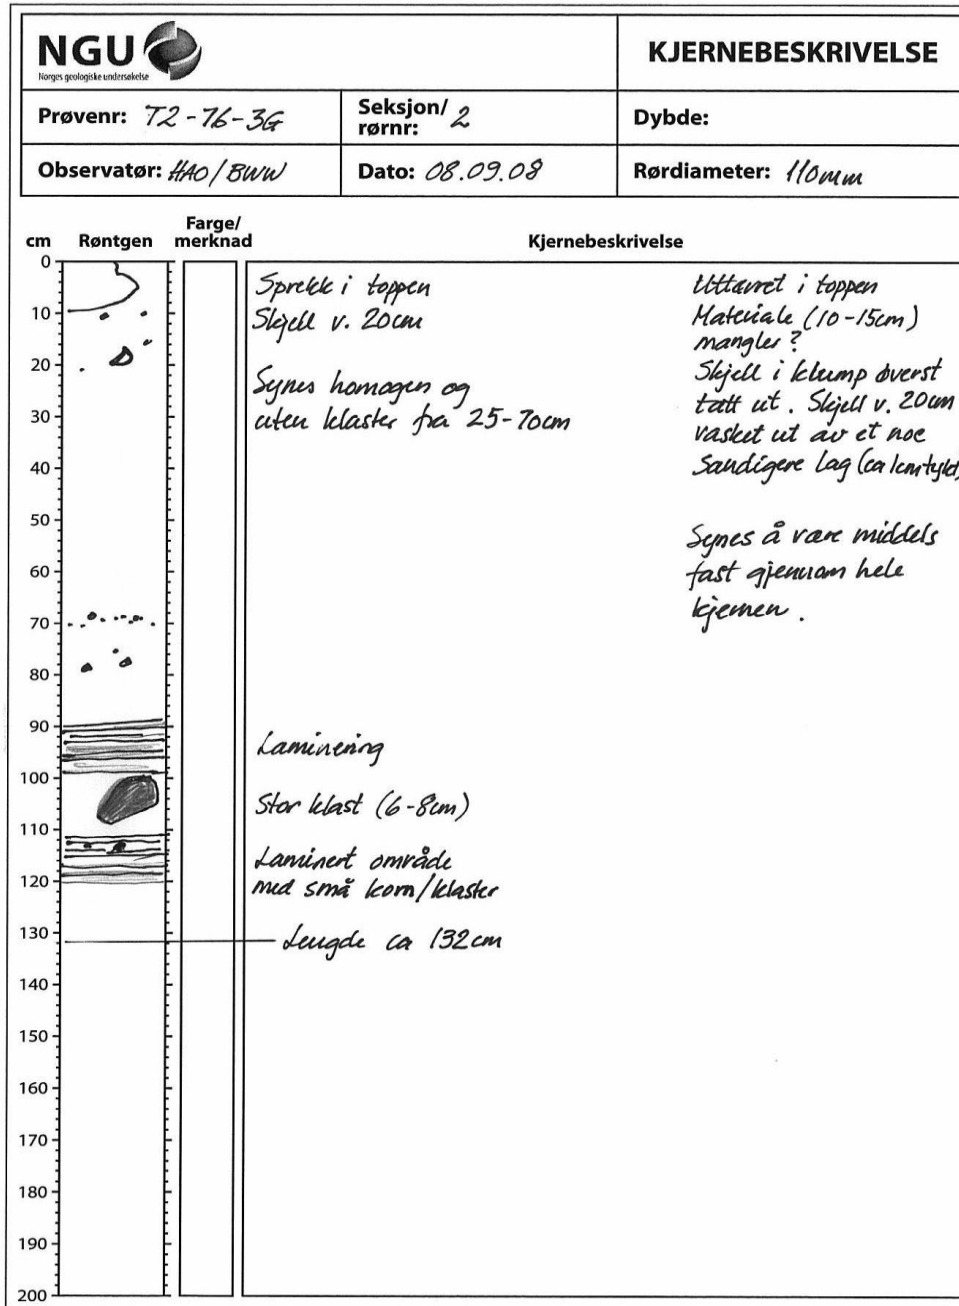 NGU
Norges geologiske undersøkelse
KJERNEBESKRIVELSE
Prøvenr: T2-76-3G
Seksjon/ rørnr: 2
Dybde:
Observatør: HAO/BWW
Dato: 08.09.08
Rørdiameter: 110mm
cm
Røntgen
Farge/
merknad
Kjernebeskrivelse
0
10
20
30
40
50
60
70
80
90
100
110
120
130
140
150
160
170
180
190
200
Sprekk i toppen
Skjell v. 20cm
Synes homogen og
uten klaster fra 25-70cm
Laminering
Stor klast (6-8cm)
Laminert område
med små korn/klaster
Lengde ca 132cm
Uttørret i toppen
Materiale (10-15cm)
mangler?
Skjell i klump øverst
tatt ut. Skjell v. 20cm
vasket ut av et noe
Sandigere lag (ca 1cm tykt)
Synes å være middels
fast gjennom hele
kjernen.